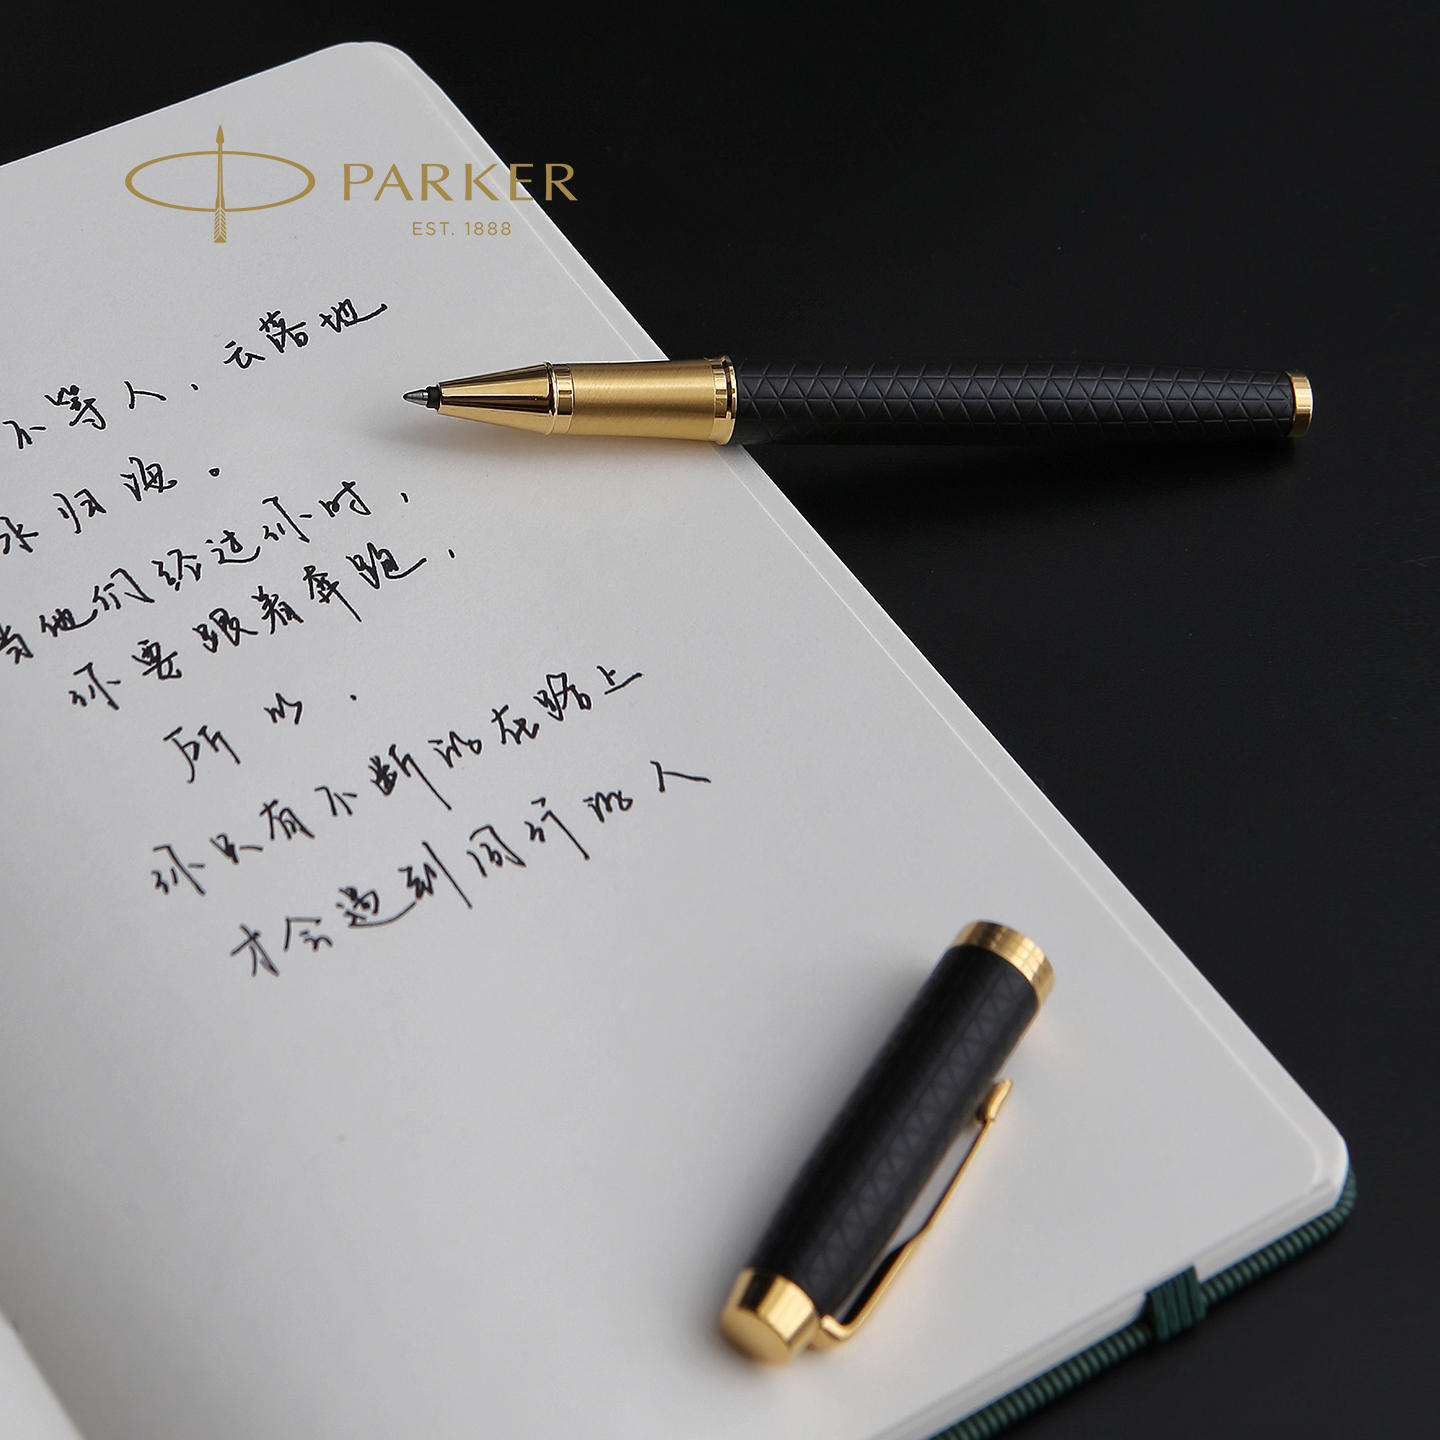 PARKER
EST. 1888
不等人,云落地
水归海。
当他们经过你时,
你要跟着奔跑,
所以,
你只有不断的在路上
才会遇到同行的人